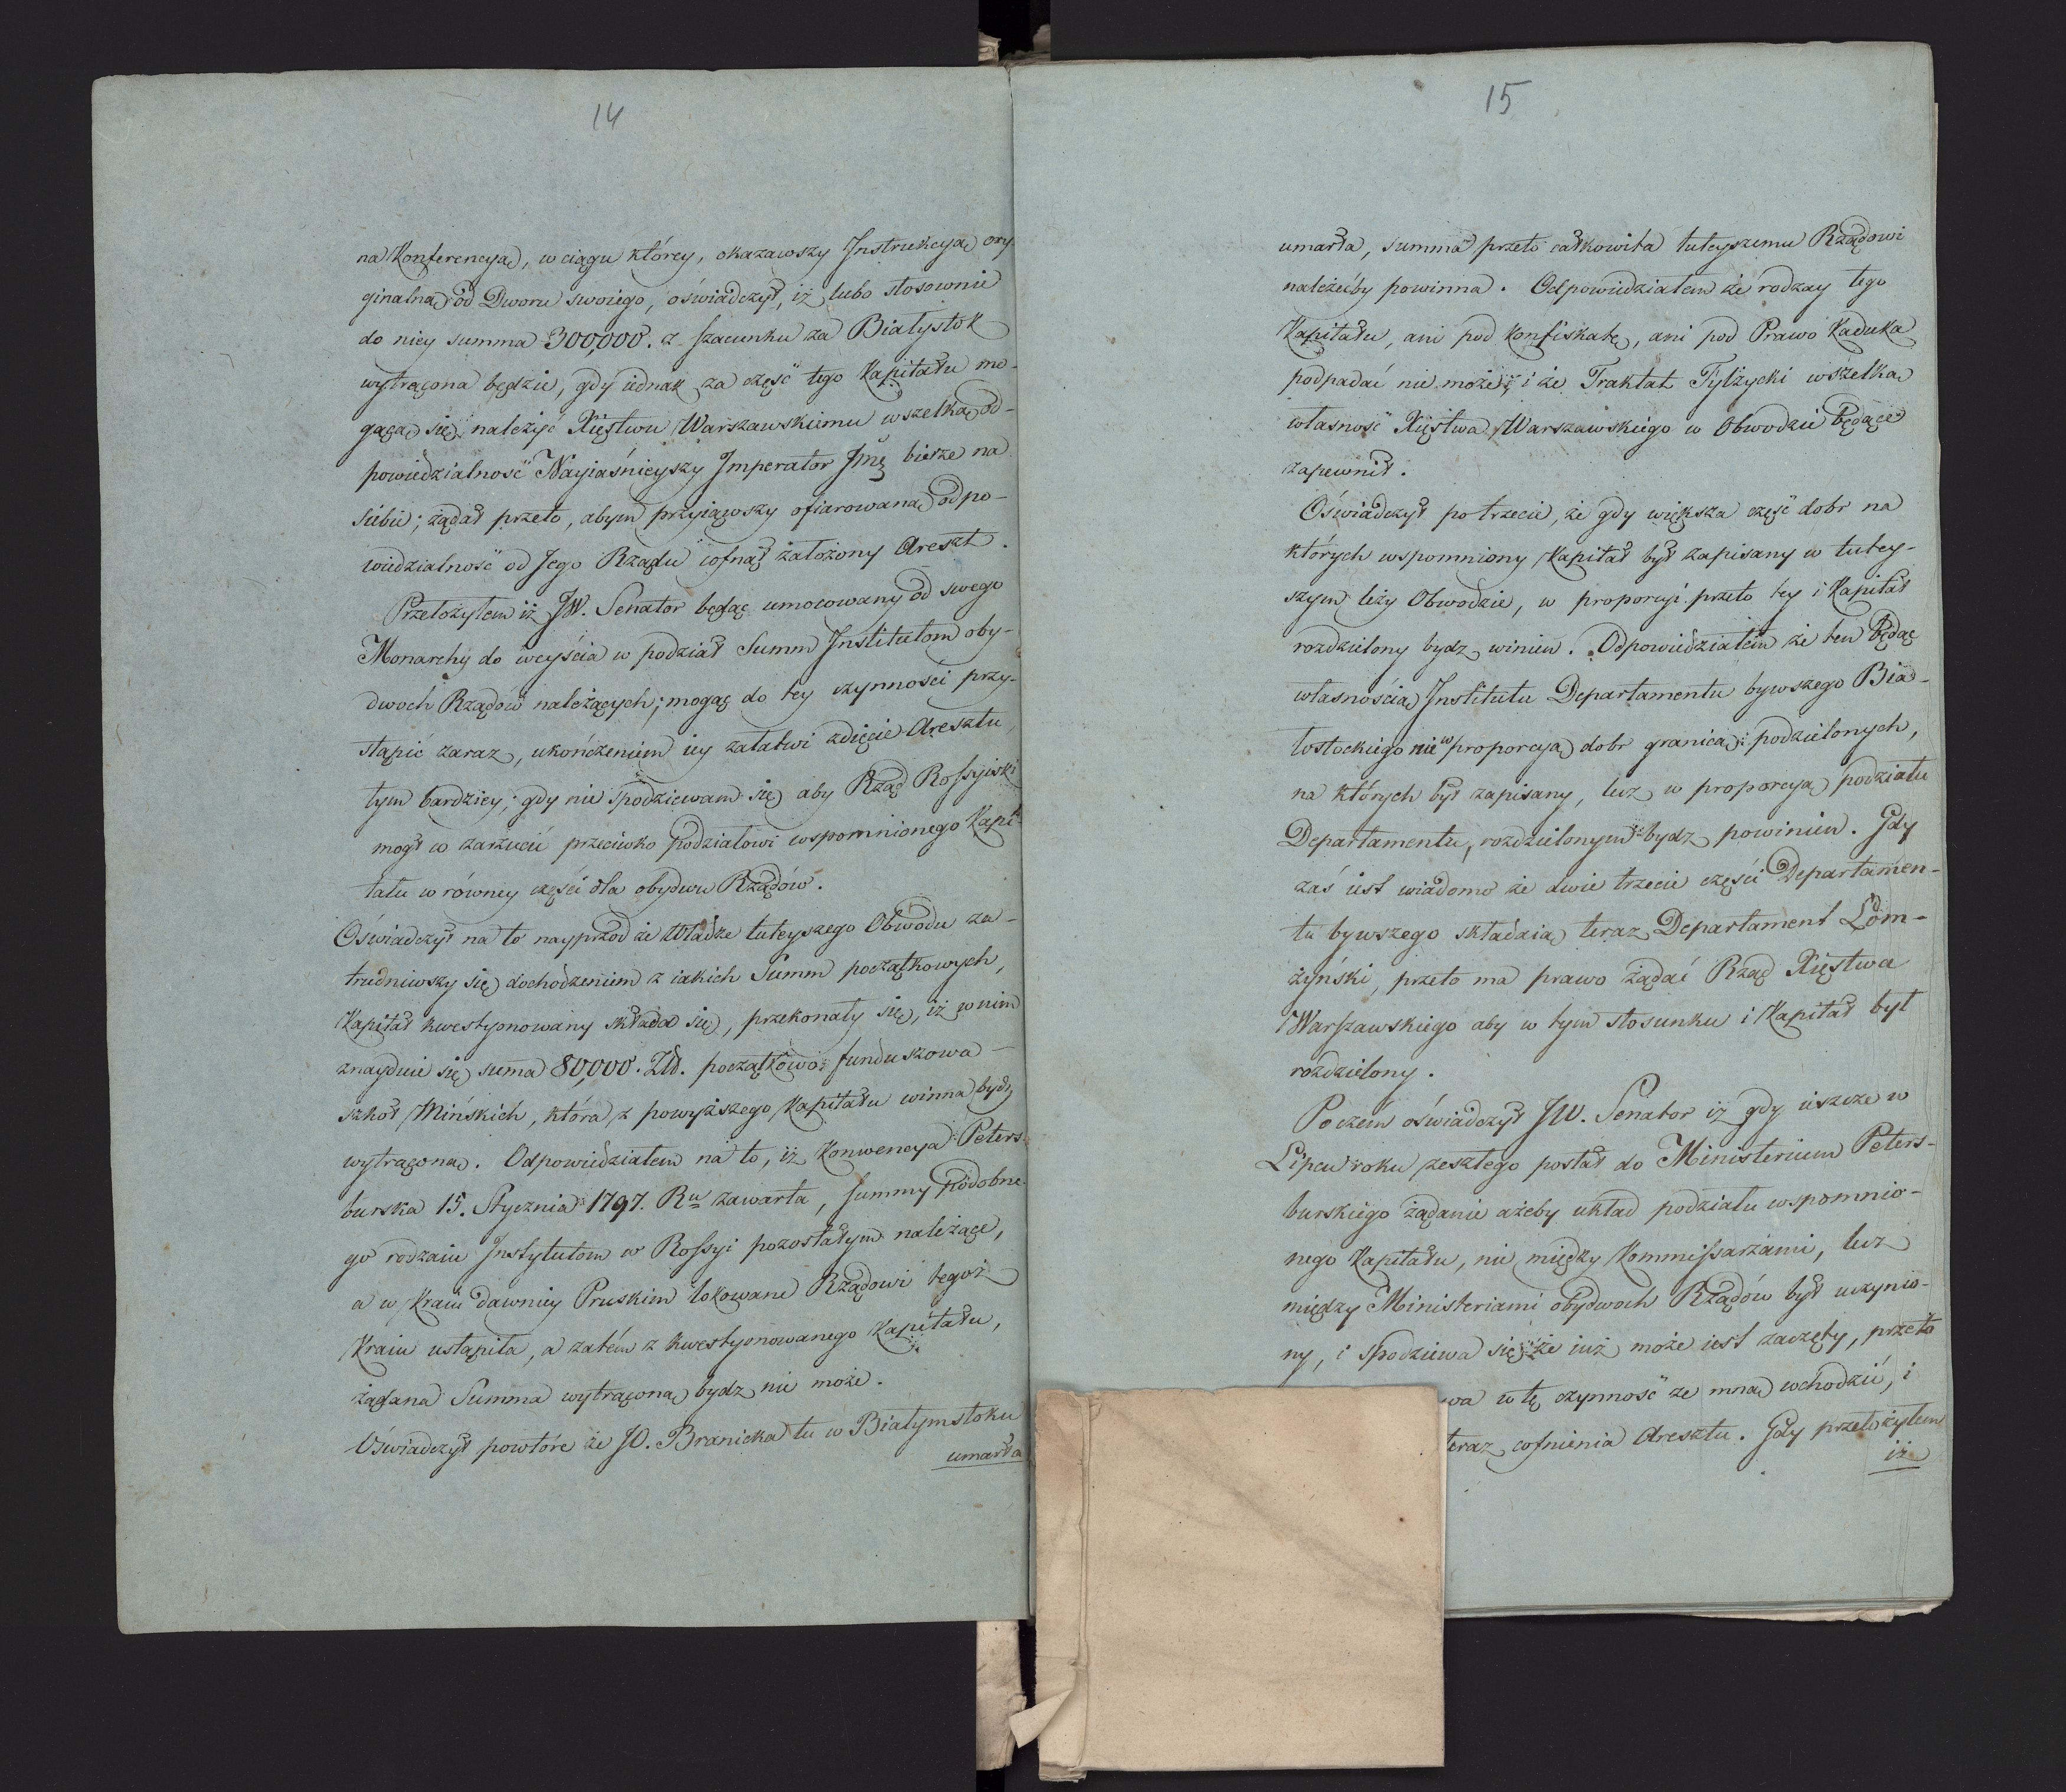 14
na Konferencyą, w ciągu którey, okazawszy Instrukcyą ory-
ginalną od Dworu swoiego, oświadczył, iż lubo stosownie
do niey summa 300,000. z szacunku za Białystok
wytrącona będzie, gdy iednak za część tego Kapitału mo-
gącą się należyć Xięstwu Warszawskiemu wszelką od-
powiedzialność Nayiaśnieyszy Imperator Jmę bierze na
siebie; żądał przeto, abym przyiąwszy ofiarowaną odpo-
wiedzialność od Jego Rządu cofnął założony Areszt.
Przełożyłem iż JW. Senator będąc umocowany od swego
Monarchy do weyścia w podział Summ Institutom oby-
dwoch Rządów należących; mogąc do tey czynności przy-
stąpić zaraz, ukończeniem iey załatwi zdięcie Aresztu,
tym bardziey, gdy nie spodziewam się aby Rząd Rossyiski
mogł co zarzucić przeciwko podziałowi wspomnionego Kapi-
tału w równey części dla obydwu Rządów.
Oświadczył na to nayprzod że Władze tuteyszego Obwodu za-
trudniwszy się dochodzeniem z iakich Summ początkowych,
Kapitał kwestyonowany składa się, przekonały się, iż w nim
znayduie się suma 80,000. Złd. początkowo funduszowa
szkoł Mińskich, która z powyższego Kapitału winna bydź
wytrąconą. Odpowiedziałem na to, iż Konwencya Peters-
burska 15. Stycznia 1797. Ru zawarta, summy podobne-
go rodzaiu Instytutom w Rossyi pozostałym należące,
a w Kraiu dawniey Pruskim lokowane Rządowi tegoż
Kraiu ustąpiła, a zatém z kwestyonowanego Kapitału,
żądana Summa wytrąconą bydz nie może.
Oświadczył powtóre że JO. Branicka tu w Białymstoku
umarła
15
umarła, summa przeto całkowita tuteyszemu Rządowi
należećby powinna. Odpowiedziałem że rodzay tego
Kapitału, ani pod konfiskatę, ani pod Prawo Kaduka
podpadać nie może, i że Traktat Tylżycki wszelką
własność Xięstwa Warszawskiego w Obwodzie będące
zapewnił.
Oświadczył po trzecie, że gdy większa część dobr na
których wspomniony Kapitał był zapisany w tutey-
szym leży Obwodzie, w proporcyi przeto tey i Kapitał
rozdzielony bydz winien. Odpowiedziałem że ten będąc
własnością Institutu Departamentu bywszego Biał-
łostockiego nie w proporcyą dobr granicą podzielonych,
na których był zapisany, lecz w proporcyą podziału
Departamentu, rozdzielonym bydz powinien. Gdy
zaś iest wiadomo że dwie trzecie części Departamen-
tu bywszego składaią teraz Departament Łom-
żyński, przeto ma prawo żądać Rząd Xięstwa
Warszawskiego aby w tym stosunku i Kapitał był
rozdzielony.
Poczém oświadczył JW. Senator iż gdy ieszcze w
Lipcu roku zeszłego posłał do Ministerium Peters-
burskiego żądanie ażeby układ podziału wspomnio-
nego Kapitału, nie między Kommissarzami, lecz
między Ministeriami obydwoch Rządów był uczynio-
ny, i spodziewa się że iuż może iest zaczęty, przeto
wa w tę czynność ze mną wchodzić, i
teraz cofnienia Aresztu. Gdy przełożyłem
iż